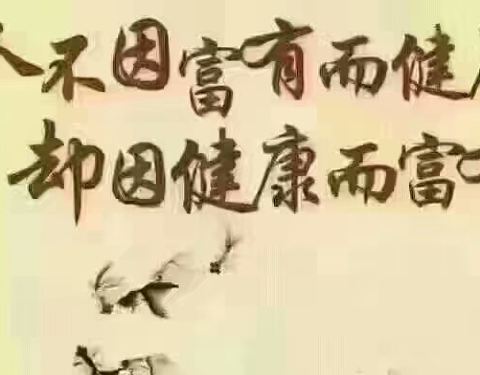 人不因富有而健康
却因健康而富有